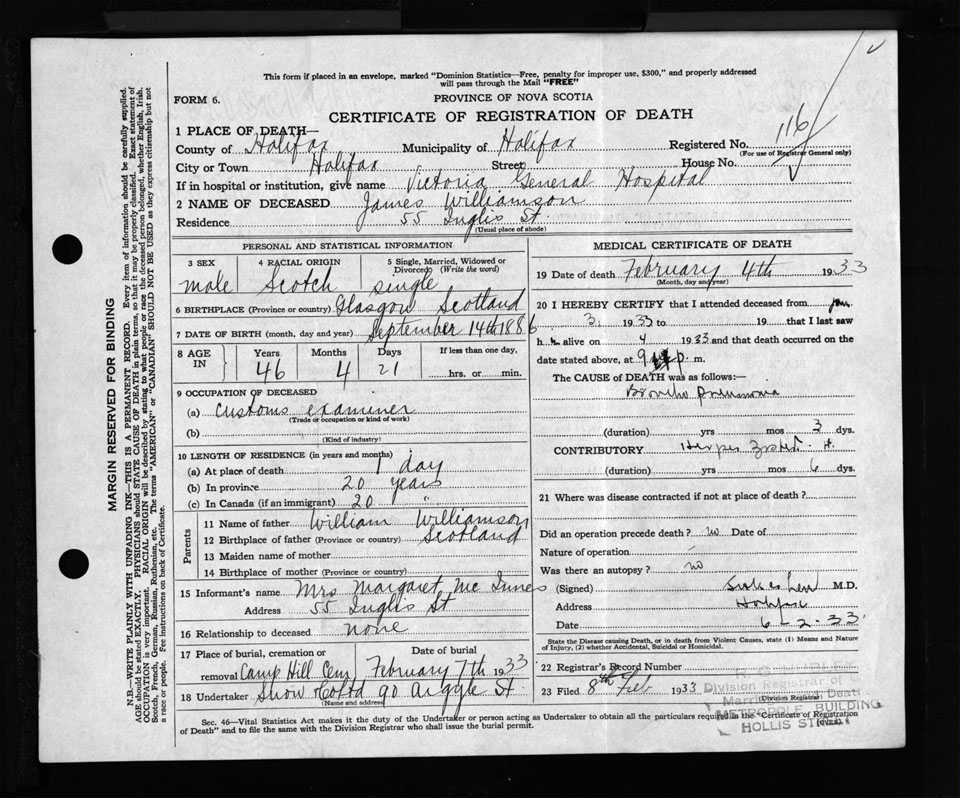 This form if placed in an envelope, marked "Dominion Statistics—Free, penalty for improper use, $300," and properly addressed
will pass through the Mail "FREE"
FORM 6.
PROVINCE OF NOVA SCOTIA
CERTIFICATE OF REGISTRATION OF DEATH
116
1 PLACE OF DEATH—
County of Halifax Municipality of Halifax Registered No.
(For use of Registrar General only)
City or Town Halifax Street House No.
If in hospital or institution, give name Victoria General Hospital
2 NAME OF DECEASED James Williamson
Residence 55 Inglis St.
(Usual place of abode)
PERSONAL AND STATISTICAL INFORMATION
3 SEX 4 RACIAL ORIGIN 5 Single, Married, Widowed or Divorced (Write the word)
male Scotch single
6 BIRTHPLACE (Province or country) Glasgow Scotland
7 DATE OF BIRTH (month, day and year) September 14th 1886
8 AGE IN Years Months Days If less than one day,
46 4 21 hrs. or min.
9 OCCUPATION OF DECEASED
(a) customs examiner
(Trade or occupation or kind of work)
(b)
(Kind of industry)
10 LENGTH OF RESIDENCE (in years and months)
(a) At place of death 1 day
(b) In province 20 years
(c) In Canada (if an immigrant) 20 "
Parents
11 Name of father William Williamson
12 Birthplace of father (Province or country) Scotland
13 Maiden name of mother
14 Birthplace of mother (Province or country)
15 Informant's name Mrs Margaret Mc Innes
Address 55 Inglis St
16 Relationship to deceased none
17 Place of burial, cremation or removal Camp Hill Cem Date of burial February 7th 1933
18 Undertaker Snow & Co Ltd 90 Argyle St.
(Name and address)
MEDICAL CERTIFICATE OF DEATH
19 Date of death February 4th 1933
(Month, day and year)
20 I HEREBY CERTIFY that I attended deceased from Jan
3 1933 to 19 that I last saw
h alive on 4 1933 and that death occurred on the
date stated above, at 9 p. m.
The CAUSE of DEATH was as follows:—
Broncho pneumonia
(duration) yrs mos 3 dys.
CONTRIBUTORY Herpes Zoster
(duration) yrs mos 6 dys.
21 Where was disease contracted if not at place of death?
Did an operation precede death? no Date of
Nature of operation
Was there an autopsy? no
(Signed) M.D.
Address Halifax
Date 6-2-33
State the Disease causing Death, or in death from Violent Causes, state (1) Means and Nature
of Injury, (2) whether Accidental, Suicidal or Homicidal.
22 Registrar's Record Number
23 Filed 8th Feb 1933
(Division Registrar)
Division Registrar of
Marriages and Death
METROPOLE BUILDING
HOLLIS STREET
Sec. 46—Vital Statistics Act makes it the duty of the Undertaker or person acting as Undertaker to obtain all the particulars required in the "Certificate of Registration
of Death" and to file the same with the Division Registrar who shall issue the burial permit.
(OVER)
MARGIN RESERVED FOR BINDING
N.B.—WRITE PLAINLY WITH UNFADING INK—THIS IS A PERMANENT RECORD. Every item of information should be carefully supplied.
AGE should be stated EXACTLY. PHYSICIANS should STATE CAUSE OF DEATH in plain terms, so that it may be properly classified. Exact statement of
OCCUPATION is very important. RACIAL ORIGIN will be described by stating to what people or race the deceased person belonged, whether English, Irish,
Scotch, French, German, Russian, Ruthenian, etc. The terms "AMERICAN" or "CANADIAN" SHOULD NOT BE USED as they express citizenship but not
a race or people. See instructions on back of Certificate.